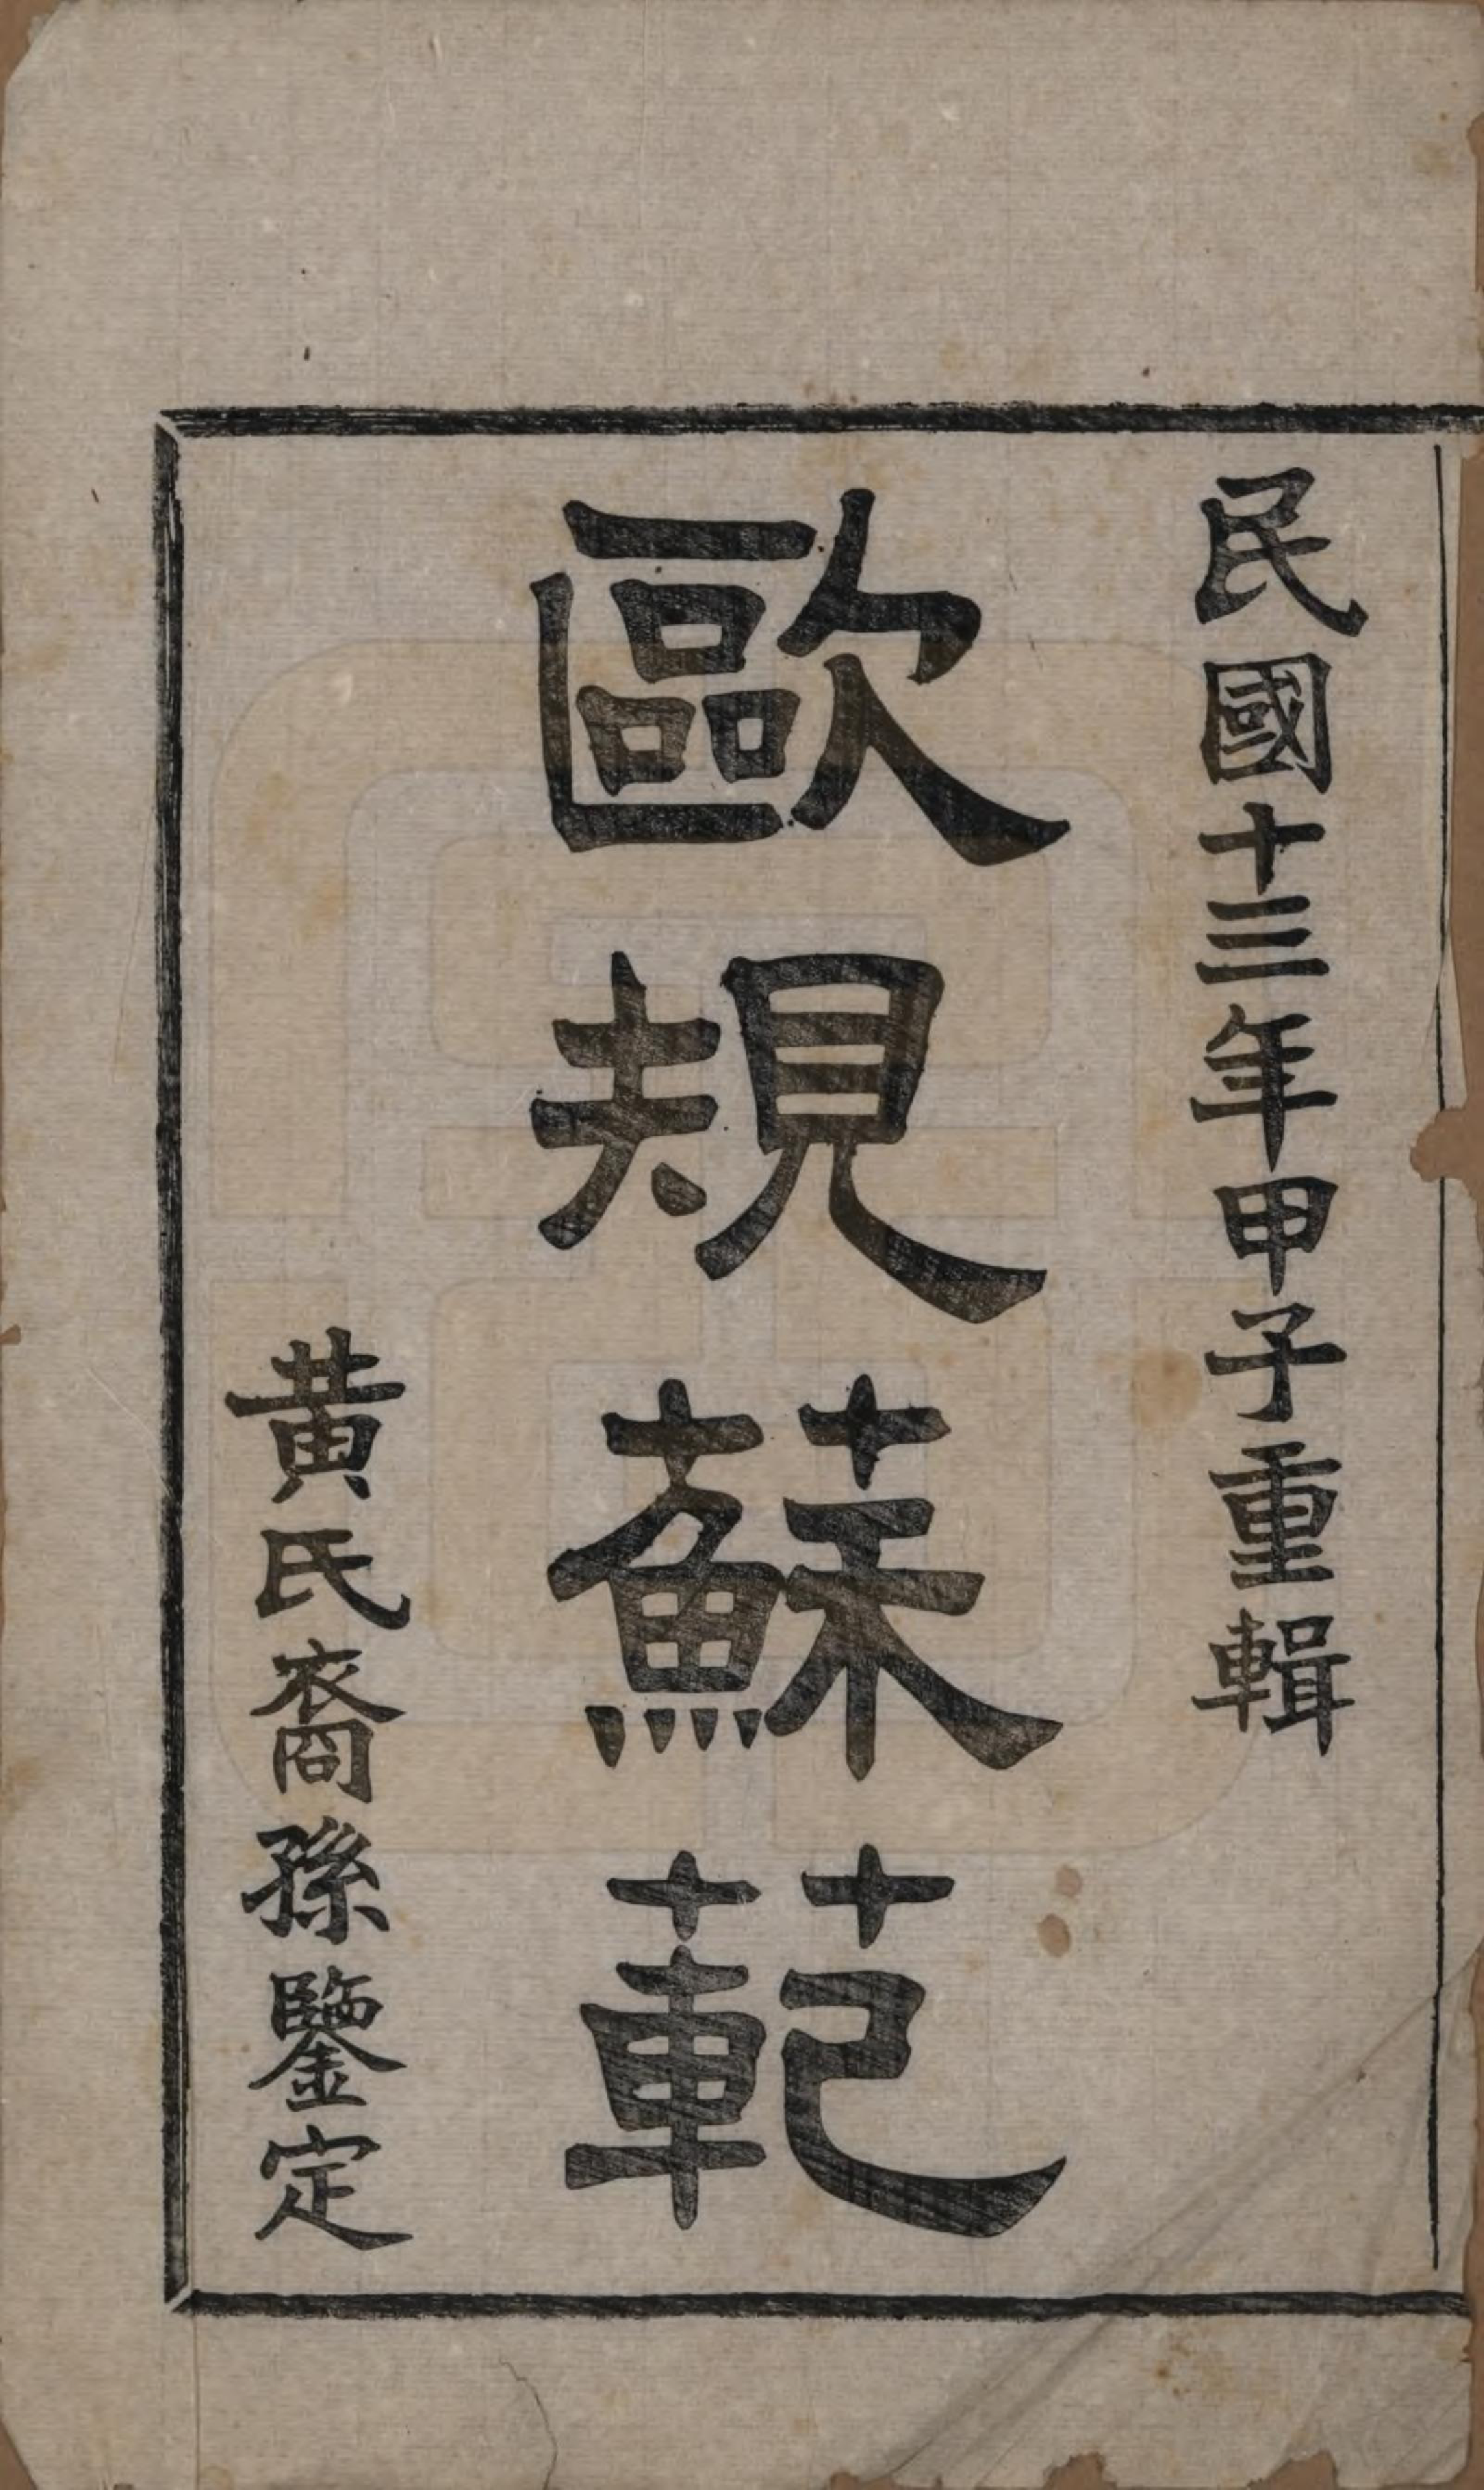 民國十三年甲子重輯
歐規蘇範
黃氏裔孫鑒定